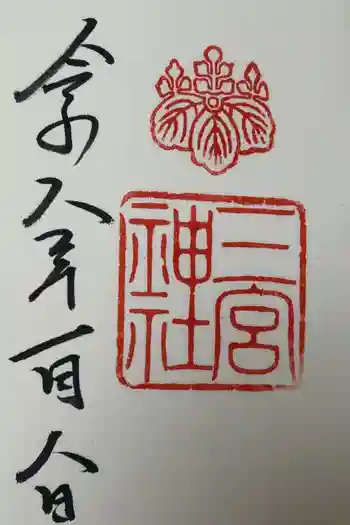 二宮
神社
令和八年一月八日